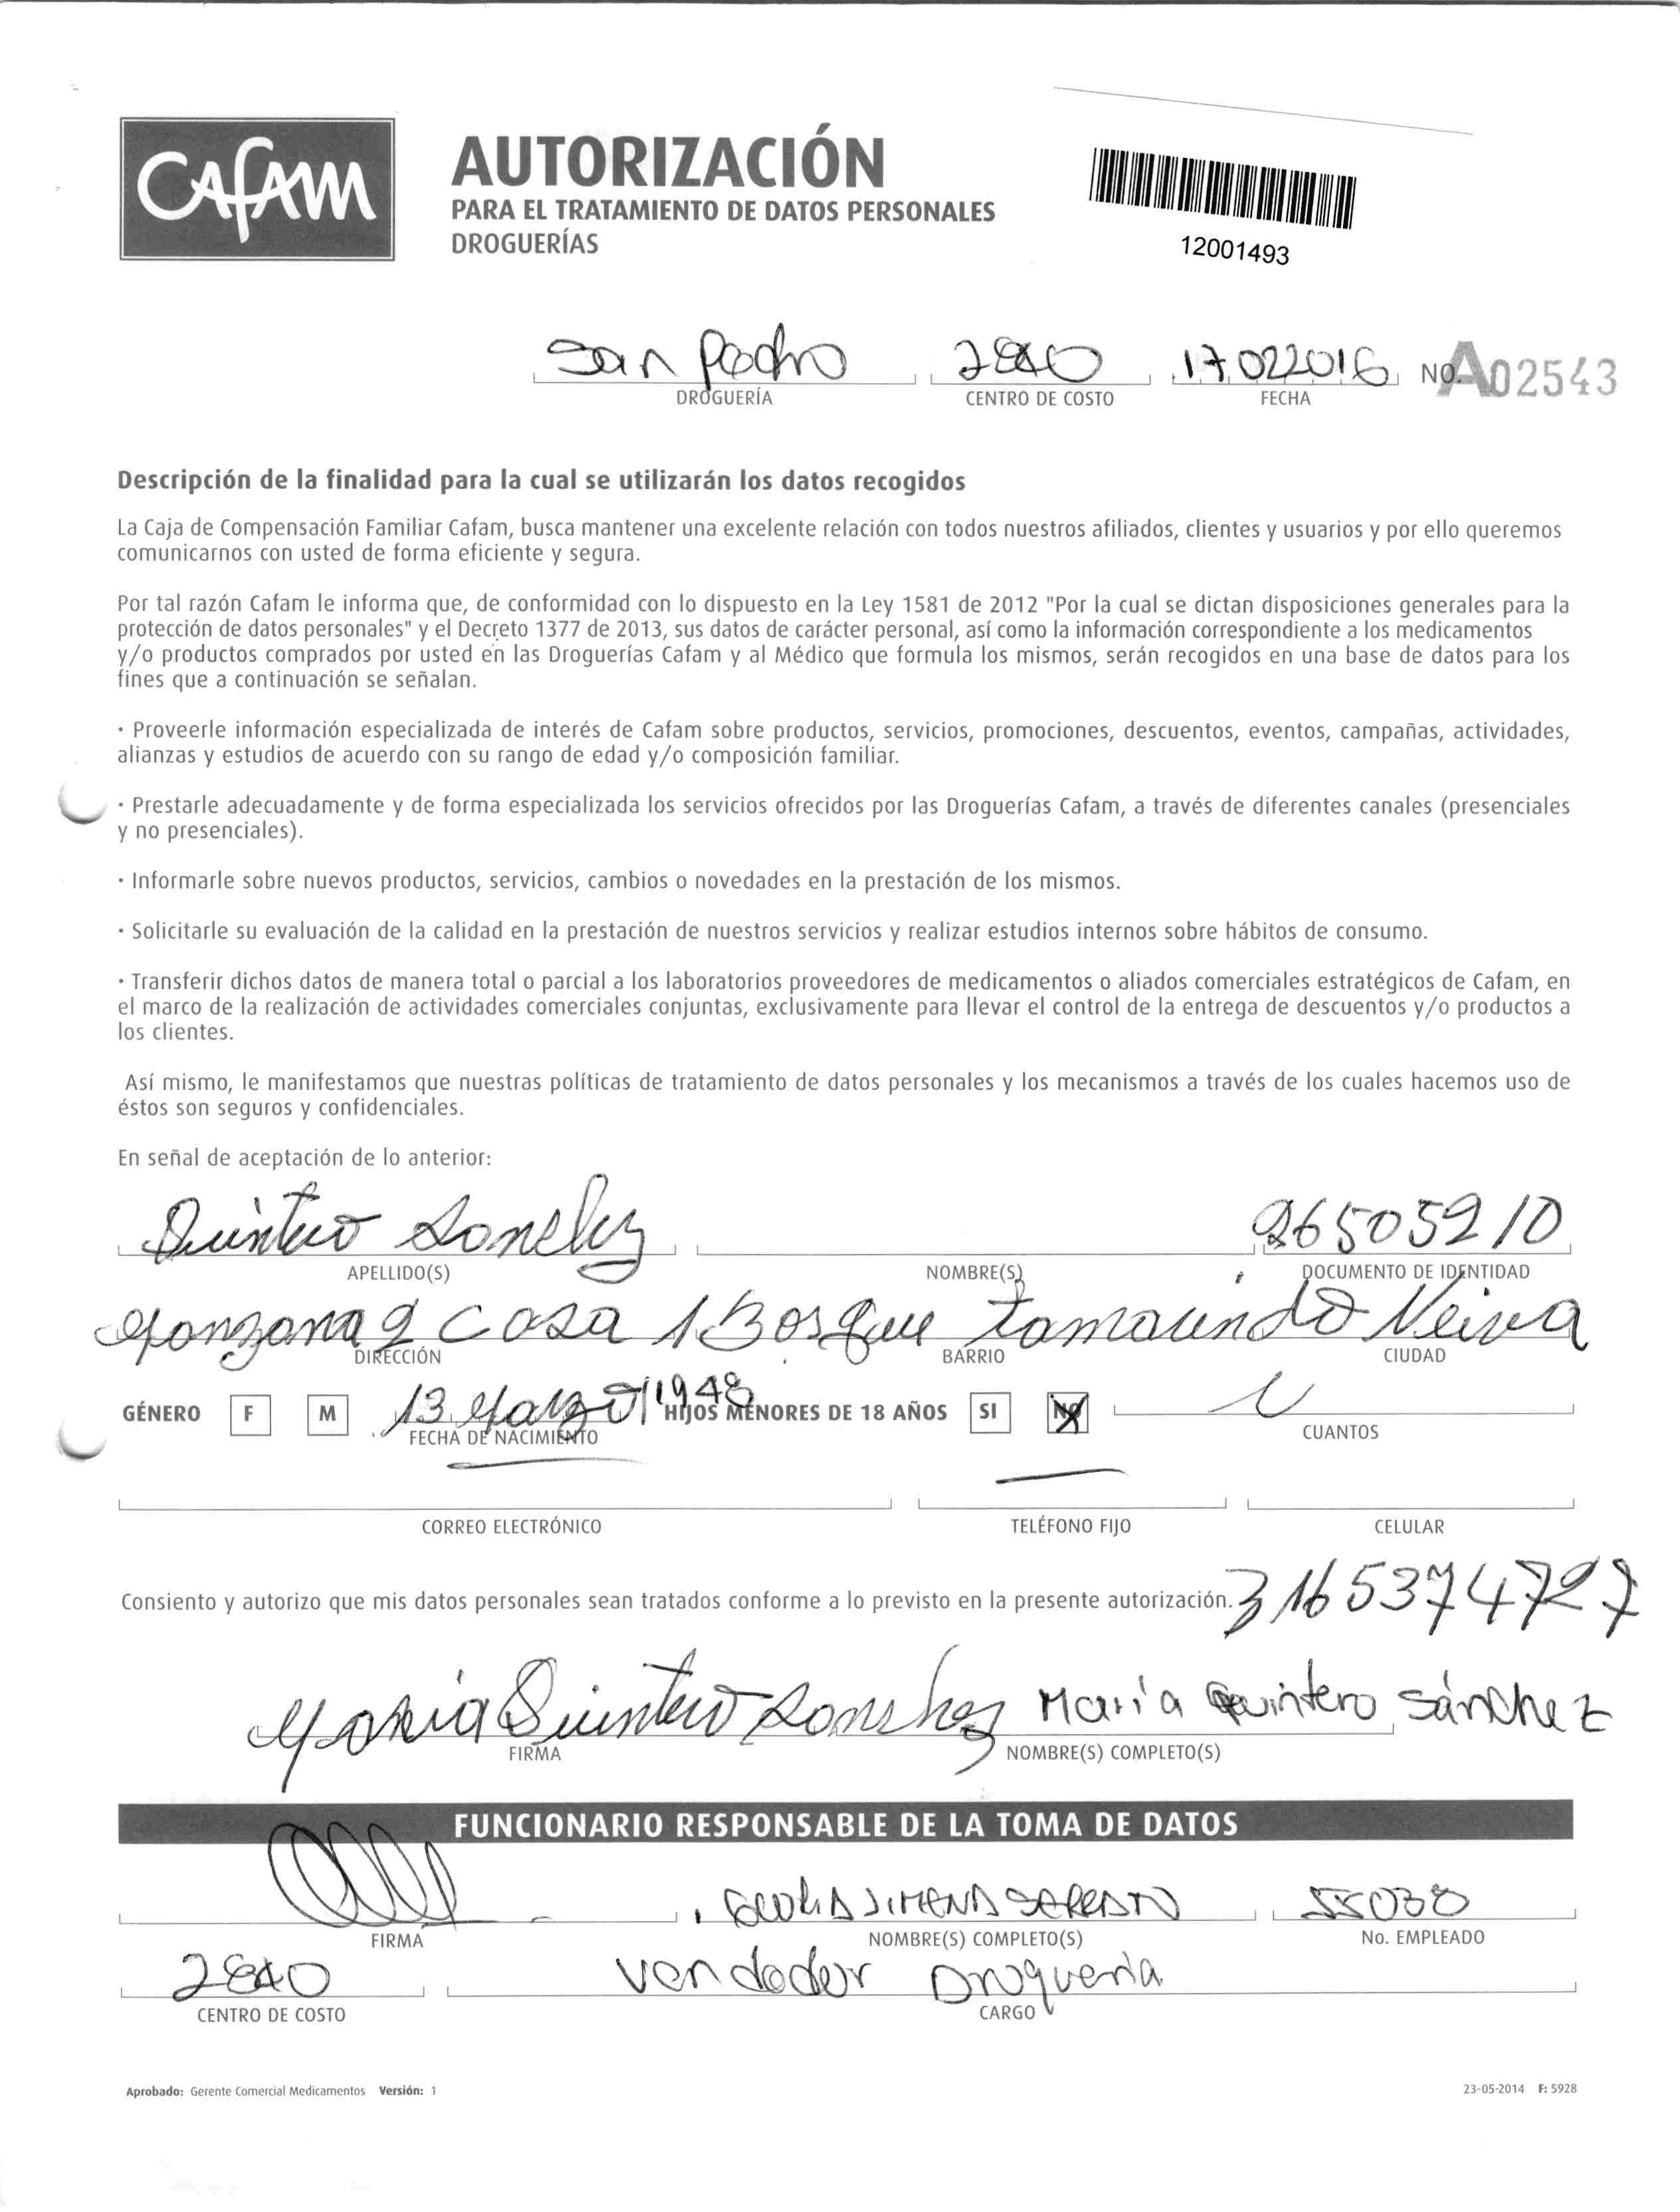 CAFAM
AUTORIZACIÓN
PARA EL TRATAMIENTO DE DATOS PERSONALES
DROGUERÍAS
12001493
San Pedro 2840 17022016 NO. A02543
DROGUERÍA CENTRO DE COSTO FECHA
Descripción de la finalidad para la cual se utilizarán los datos recogidos
La Caja de Compensación Familiar Cafam, busca mantener una excelente relación con todos nuestros afiliados, clientes y usuarios y por ello queremos
comunicarnos con usted de forma eficiente y segura.
Por tal razón Cafam le informa que, de conformidad con lo dispuesto en la Ley 1581 de 2012 "Por la cual se dictan disposiciones generales para la
protección de datos personales" y el Decreto 1377 de 2013, sus datos de carácter personal, así como la información correspondiente a los medicamentos
y/o productos comprados por usted en las Droguerías Cafam y al Médico que formula los mismos, serán recogidos en una base de datos para los
fines que a continuación se señalan.
· Proveerle información especializada de interés de Cafam sobre productos, servicios, promociones, descuentos, eventos, campañas, actividades,
alianzas y estudios de acuerdo con su rango de edad y/o composición familiar.
· Prestarle adecuadamente y de forma especializada los servicios ofrecidos por las Droguerías Cafam, a través de diferentes canales (presenciales
y no presenciales).
· Informarle sobre nuevos productos, servicios, cambios o novedades en la prestación de los mismos.
· Solicitarle su evaluación de la calidad en la prestación de nuestros servicios y realizar estudios internos sobre hábitos de consumo.
· Transferir dichos datos de manera total o parcial a los laboratorios proveedores de medicamentos o aliados comerciales estratégicos de Cafam, en
el marco de la realización de actividades comerciales conjuntas, exclusivamente para llevar el control de la entrega de descuentos y/o productos a
los clientes.
Así mismo, le manifestamos que nuestras políticas de tratamiento de datos personales y los mecanismos a través de los cuales hacemos uso de
éstos son seguros y confidenciales.
En señal de aceptación de lo anterior:
Quintero Sanchez 26505910
APELLIDO(S) NOMBRE(S) DOCUMENTO DE IDENTIDAD
Manzana 2 Casa 1 Bosque tamarindo Neiva
DIRECCIÓN BARRIO CIUDAD
GÉNERO F M 13 Marzo/1948 HIJOS MENORES DE 18 AÑOS SI NO
FECHA DE NACIMIENTO CUANTOS
CORREO ELECTRÓNICO TELÉFONO FIJO CELULAR
Consiento y autorizo que mis datos personales sean tratados conforme a lo previsto en la presente autorización. 3165374727
Maria Quintero Sanchez María Quintero Sánchez
FIRMA NOMBRE(S) COMPLETO(S)
FUNCIONARIO RESPONSABLE DE LA TOMA DE DATOS
JIMENA 55038
FIRMA NOMBRE(S) COMPLETO(S) No. EMPLEADO
2840 Vendedor Droguería
CENTRO DE COSTO CARGO
Aprobado: Gerente Comercial Medicamentos Versión: 1 23-05-2014 F: 5928